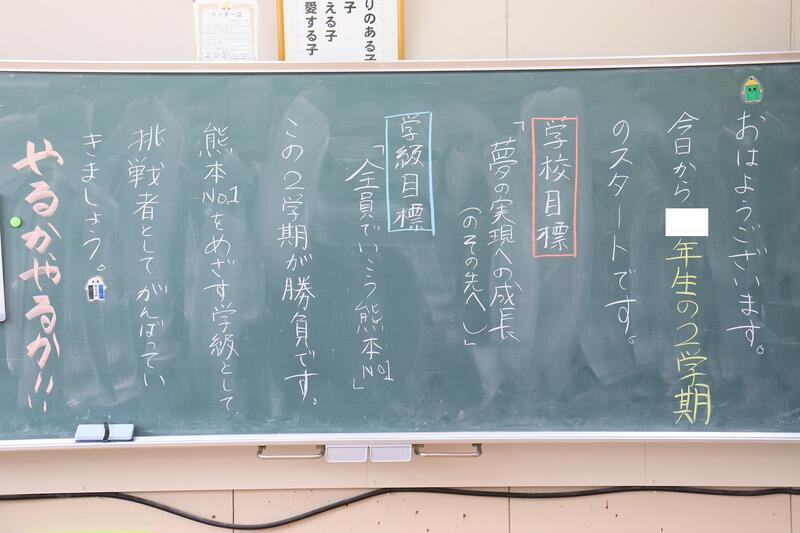 リーダー証
りのある子
える子
愛する子
おはようございます。
今日から
年生の2学期
のスタートです。
学校目標
「夢の実現への成長
(のその先へし)」
学級目標
「全員でいこう熊本No.1」
この2学期が勝負です。
熊本No.1をめざす学級として
挑戦者としてがんばってい
きましょう。
やるかやるか!!